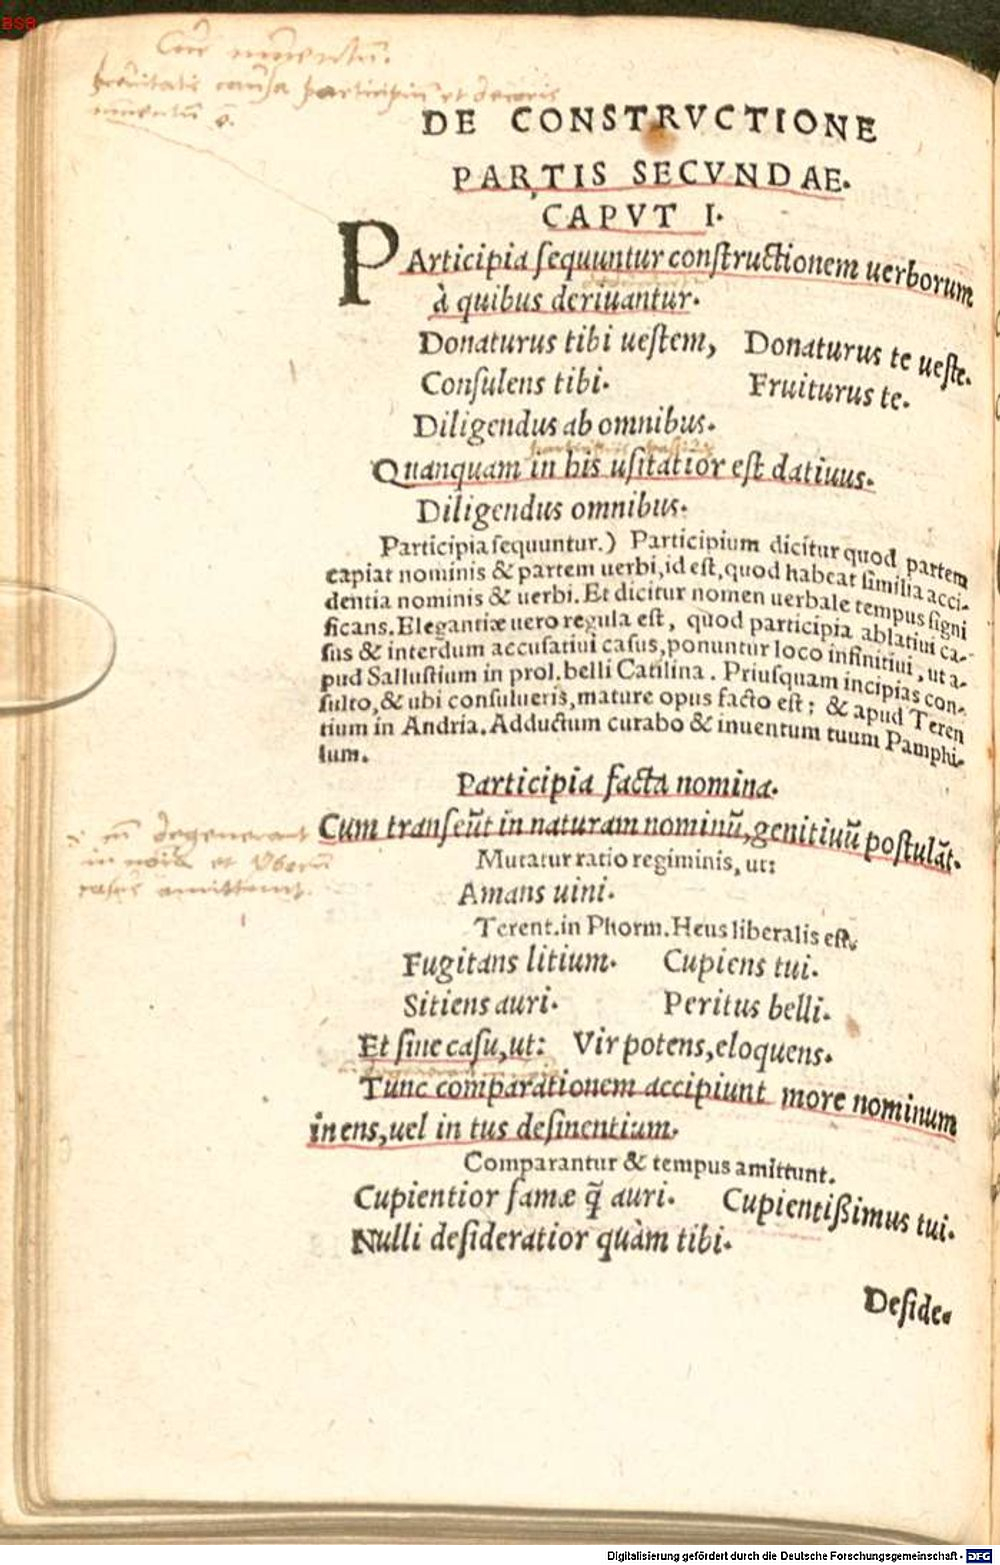 BSB
DE CONSTRVCTIONE
PARTIS SECVNDAE.
CAPVT I.
PArticipia ſequuntur conſtructionem uerborum
à quibus deriuantur.
Donaturus tibi ueſtem, Donaturus te ueſte.
Conſulens tibi. Fruiturus te.
Diligendus ab omnibus.
Quanquam in his uſitatior eſt datiuus.
Diligendus omnibus.
Participia ſequuntur.) Participium dicitur quod partem
capiat nominis & partem uerbi, id eſt, quod habeat ſimilia acci-
dentia nominis & uerbi. Et dicitur nomen uerbale tempus ſigni
ficans. Elegantiæ uero regula eſt, quod participia ablatiui ca-
ſus & interdum accuſatiui caſus, ponuntur loco infinitiui, ut a-
pud Salluſtium in prol. belli Catilina. Priuſquam incipias con-
ſulto, & ubi conſulueris, mature opus facto eſt: & apud Teren
tium in Andria. Adductum curabo & inuentum tuum Pamphi-
lum.
Participia facta nomina.
degenerant
et
amittunt.
Cum tranſeũt in naturam nominũ, genitiuũ poſtulãt.
Mutatur ratio regiminis, ut:
Amans uini.
Terent. in Phorm. Heus liberalis eſt.
Fugitans litium. Cupiens tui.
Sitiens auri. Peritus belli.
Et ſine caſu, ut: Vir potens, eloquens.
Tunc comparationem accipiunt more nominum
in ens, uel in tus deſinentium.
Comparantur & tempus amittunt.
Cupientior famæ q̃ auri. Cupientißimus tui.
Nulli deſideratior quàm tibi.
Deſide-
Digitalisierung gefördert durch die Deutsche Forschungsgemeinschaft - DFG